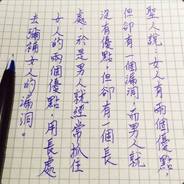 聖人說，女人有兩個優點，
但卻有一個漏洞，而男人就
沒有優點，但卻有一個長
處，於是男人就經常抓住
女人的兩個優點，用長處
去彌補女人的漏洞。